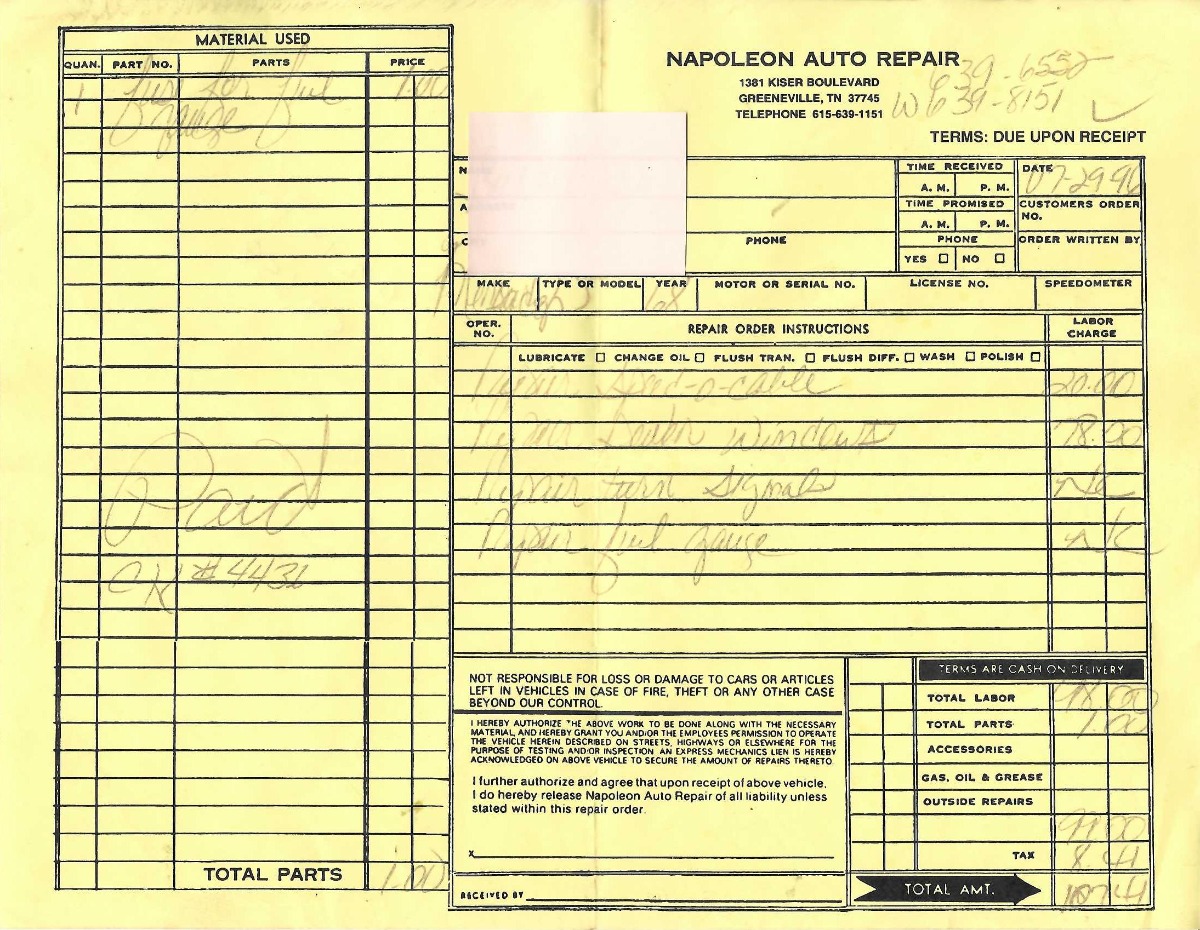 MATERIAL USED
QUAN. PART NO. PARTS PRICE
1 fuse for fuel 1.00
gauge
Paid
CK # 4431
TOTAL PARTS 1.00
NAPOLEON AUTO REPAIR
1381 KISER BOULEVARD
GREENEVILLE, TN 37745
TELEPHONE 615-639-1151
639-6552
W 639-8151
TERMS: DUE UPON RECEIPT
TIME RECEIVED
A. M. P. M.
TIME PROMISED
A. M. P. M.
PHONE
YES NO
DATE 07-29-96
CUSTOMERS ORDER
NO.
ORDER WRITTEN BY
PHONE
MAKE TYPE OR MODEL YEAR MOTOR OR SERIAL NO. LICENSE NO. SPEEDOMETER
68
OPER.
NO.
REPAIR ORDER INSTRUCTIONS
LABOR
CHARGE
LUBRICATE CHANGE OIL FLUSH TRAN. FLUSH DIFF. WASH POLISH
Repair Speed-o-cable 20.00
Repair Broken Window 78.00
Repair turn signals N/C
Repair fuel gauge N/C
NOT RESPONSIBLE FOR LOSS OR DAMAGE TO CARS OR ARTICLES
LEFT IN VEHICLES IN CASE OF FIRE, THEFT OR ANY OTHER CASE
BEYOND OUR CONTROL.
I HEREBY AUTHORIZE THE ABOVE WORK TO BE DONE ALONG WITH THE NECESSARY
MATERIAL, AND HEREBY GRANT YOU AND/OR THE EMPLOYEES PERMISSION TO OPERATE
THE VEHICLE HEREIN DESCRIBED ON STREETS, HIGHWAYS OR ELSEWHERE FOR THE
PURPOSE OF TESTING AND/OR INSPECTION. AN EXPRESS MECHANICS LIEN IS HEREBY
ACKNOWLEDGED ON ABOVE VEHICLE TO SECURE THE AMOUNT OF REPAIRS THERETO.
I further authorize and agree that upon receipt of above vehicle.
I do hereby release Napoleon Auto Repair of all liability unless
stated within this repair order.
x
RECEIVED BY
TERMS ARE CASH ON DELIVERY
TOTAL LABOR 98.00
TOTAL PARTS 1.00
ACCESSORIES
GAS, OIL & GREASE
OUTSIDE REPAIRS
99.00
TAX 8.41
TOTAL AMT. 107.41